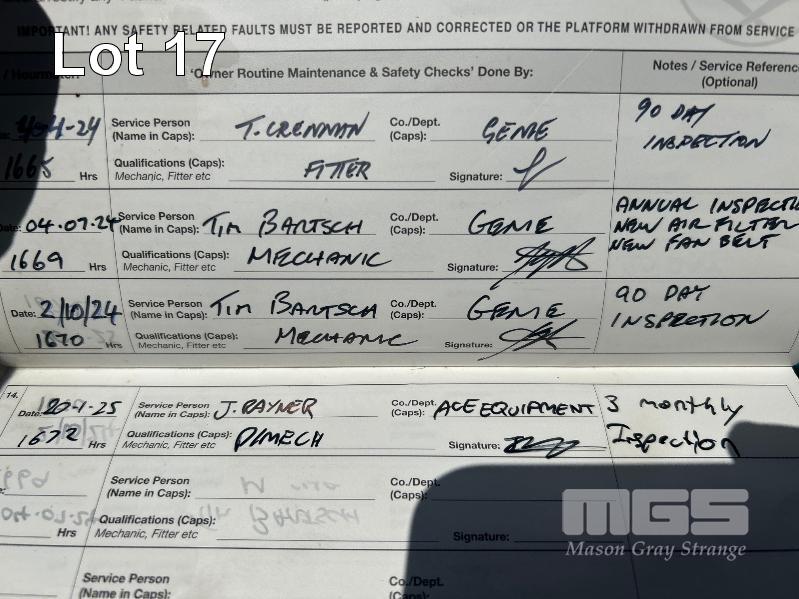 IMPORTANT! ANY SAFETY RELATED FAULTS MUST BE REPORTED AND CORRECTED OR THE PLATFORM WITHDRAWN FROM SERVICE
Lot 17
'Owner Routine Maintenance & Safety Checks' Done By:
Notes / Service Reference
(Optional)
Service Person
(Name in Caps): T. CRENMAN
Co./Dept.
(Caps): GENIE
90 DAY
INSPECTION
1665 Hrs
Qualifications (Caps): FITTER
Mechanic, Fitter etc
Signature:
Date: 04.07.24
Service Person
(Name in Caps): TIM BARTSCH
Co./Dept.
(Caps): GENIE
ANNUAL INSPECTI
NEW AIR FILTER
NEW FAN BELT
1669 Hrs
Qualifications (Caps): MECHANIC
Mechanic, Fitter etc
Signature:
Date: 2/10/24
Service Person
(Name in Caps): TIM BARTSCH
Co./Dept.
(Caps): GENIE
90 DAY
INSPECTION
1670 Hrs
Qualifications (Caps): MECHANIC
Mechanic, Fitter etc
Signature:
14.
Date: 20-1-25
Service Person
(Name in Caps): J. RAYNER
Co./Dept.
(Caps): ACE EQUIPMENT
3 monthly
Inspection
1672 Hrs
Qualifications (Caps): D/MECH
Mechanic, Fitter etc
Signature:
Service Person
(Name in Caps):
Co./Dept.
(Caps):
Hrs
Qualifications (Caps):
Mechanic, Fitter etc
Signature:
MGS
Mason Gray Strange
Service Person
(Name in Caps):
Co./Dept.
(Caps):